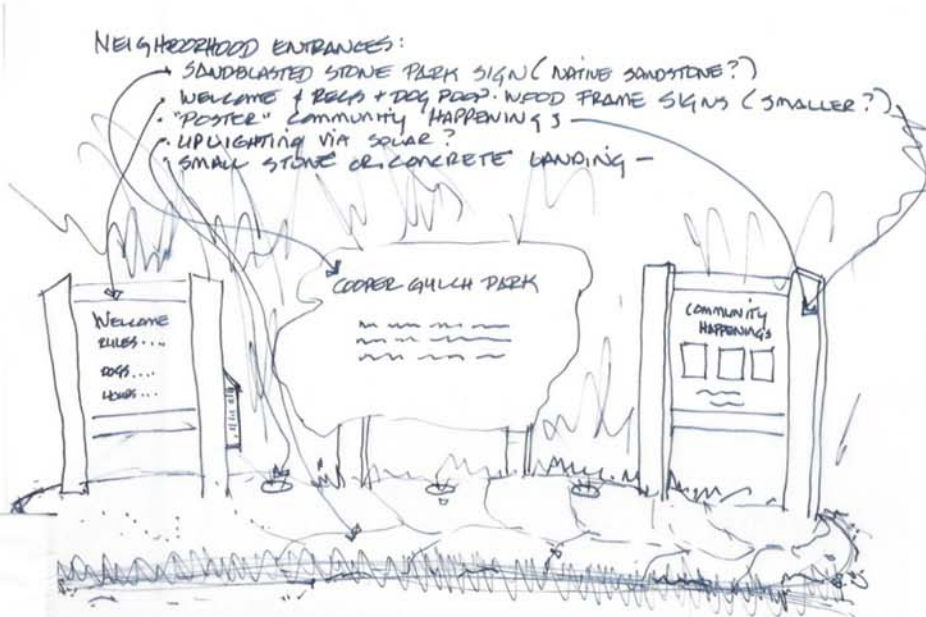 NEIGHBORHOOD ENTRANCES:
• SANDBLASTED STONE PARK SIGN (NATIVE SANDSTONE?)
• WELCOME & REGS + DOG POOP. WOOD FRAME SIGNS (SMALLER?)
• "POSTER" COMMUNITY HAPPENINGS
• UPLIGHTING VIA SOLAR?
• SMALL STONE OR CONCRETE LANDING –
COOPER GULCH PARK
WELCOME
RULES....
DOGS....
HOURS...
COMMUNITY
HAPPENINGS